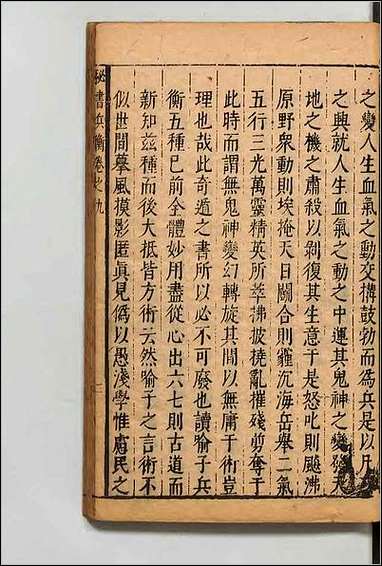 之變人生血氣之動交搆鼓勃而為兵是以
之興就人生血氣之動之中運其鬼神之變
地之機之肅殺以剝復其生意于是怒叱則颶沸
原野眾動則埃掩天日闘合則羅沉海岳舉二氣
五行三光萬靈精英所萃拂披撓亂摧殘剪奪于
此時而謂無鬼神變幻轉旋其間以無庸于術豈
理也哉此奇遁之書所以必不可廢也讀喻子兵
衡五種巳前全體妙用盡從心出六七則古道而
新知茲種而後大抵皆方術云然喻子之言術不
似世間摹風摸影匿真見偽以愚淺學惟慮民之
秘書兵衡卷之九
二